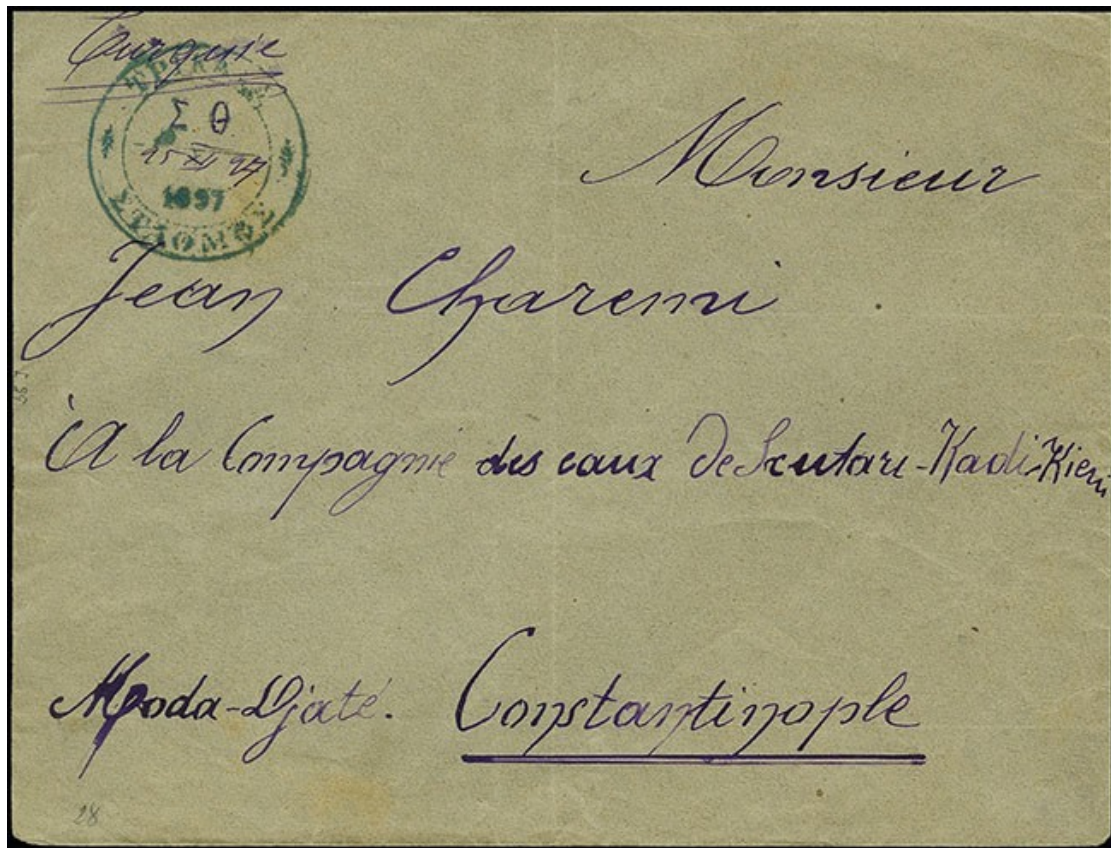 Turquie
ΤΡΙΚΑΛΑ
Σ Θ
15 XII 97
1897
ΣΤΑΘΜΟΣ
Monsieur
Jean Charemi
A la Compagnie des eaux De Scutari-Kadi-Kieni
Moda-Djaté. Constantinople
28